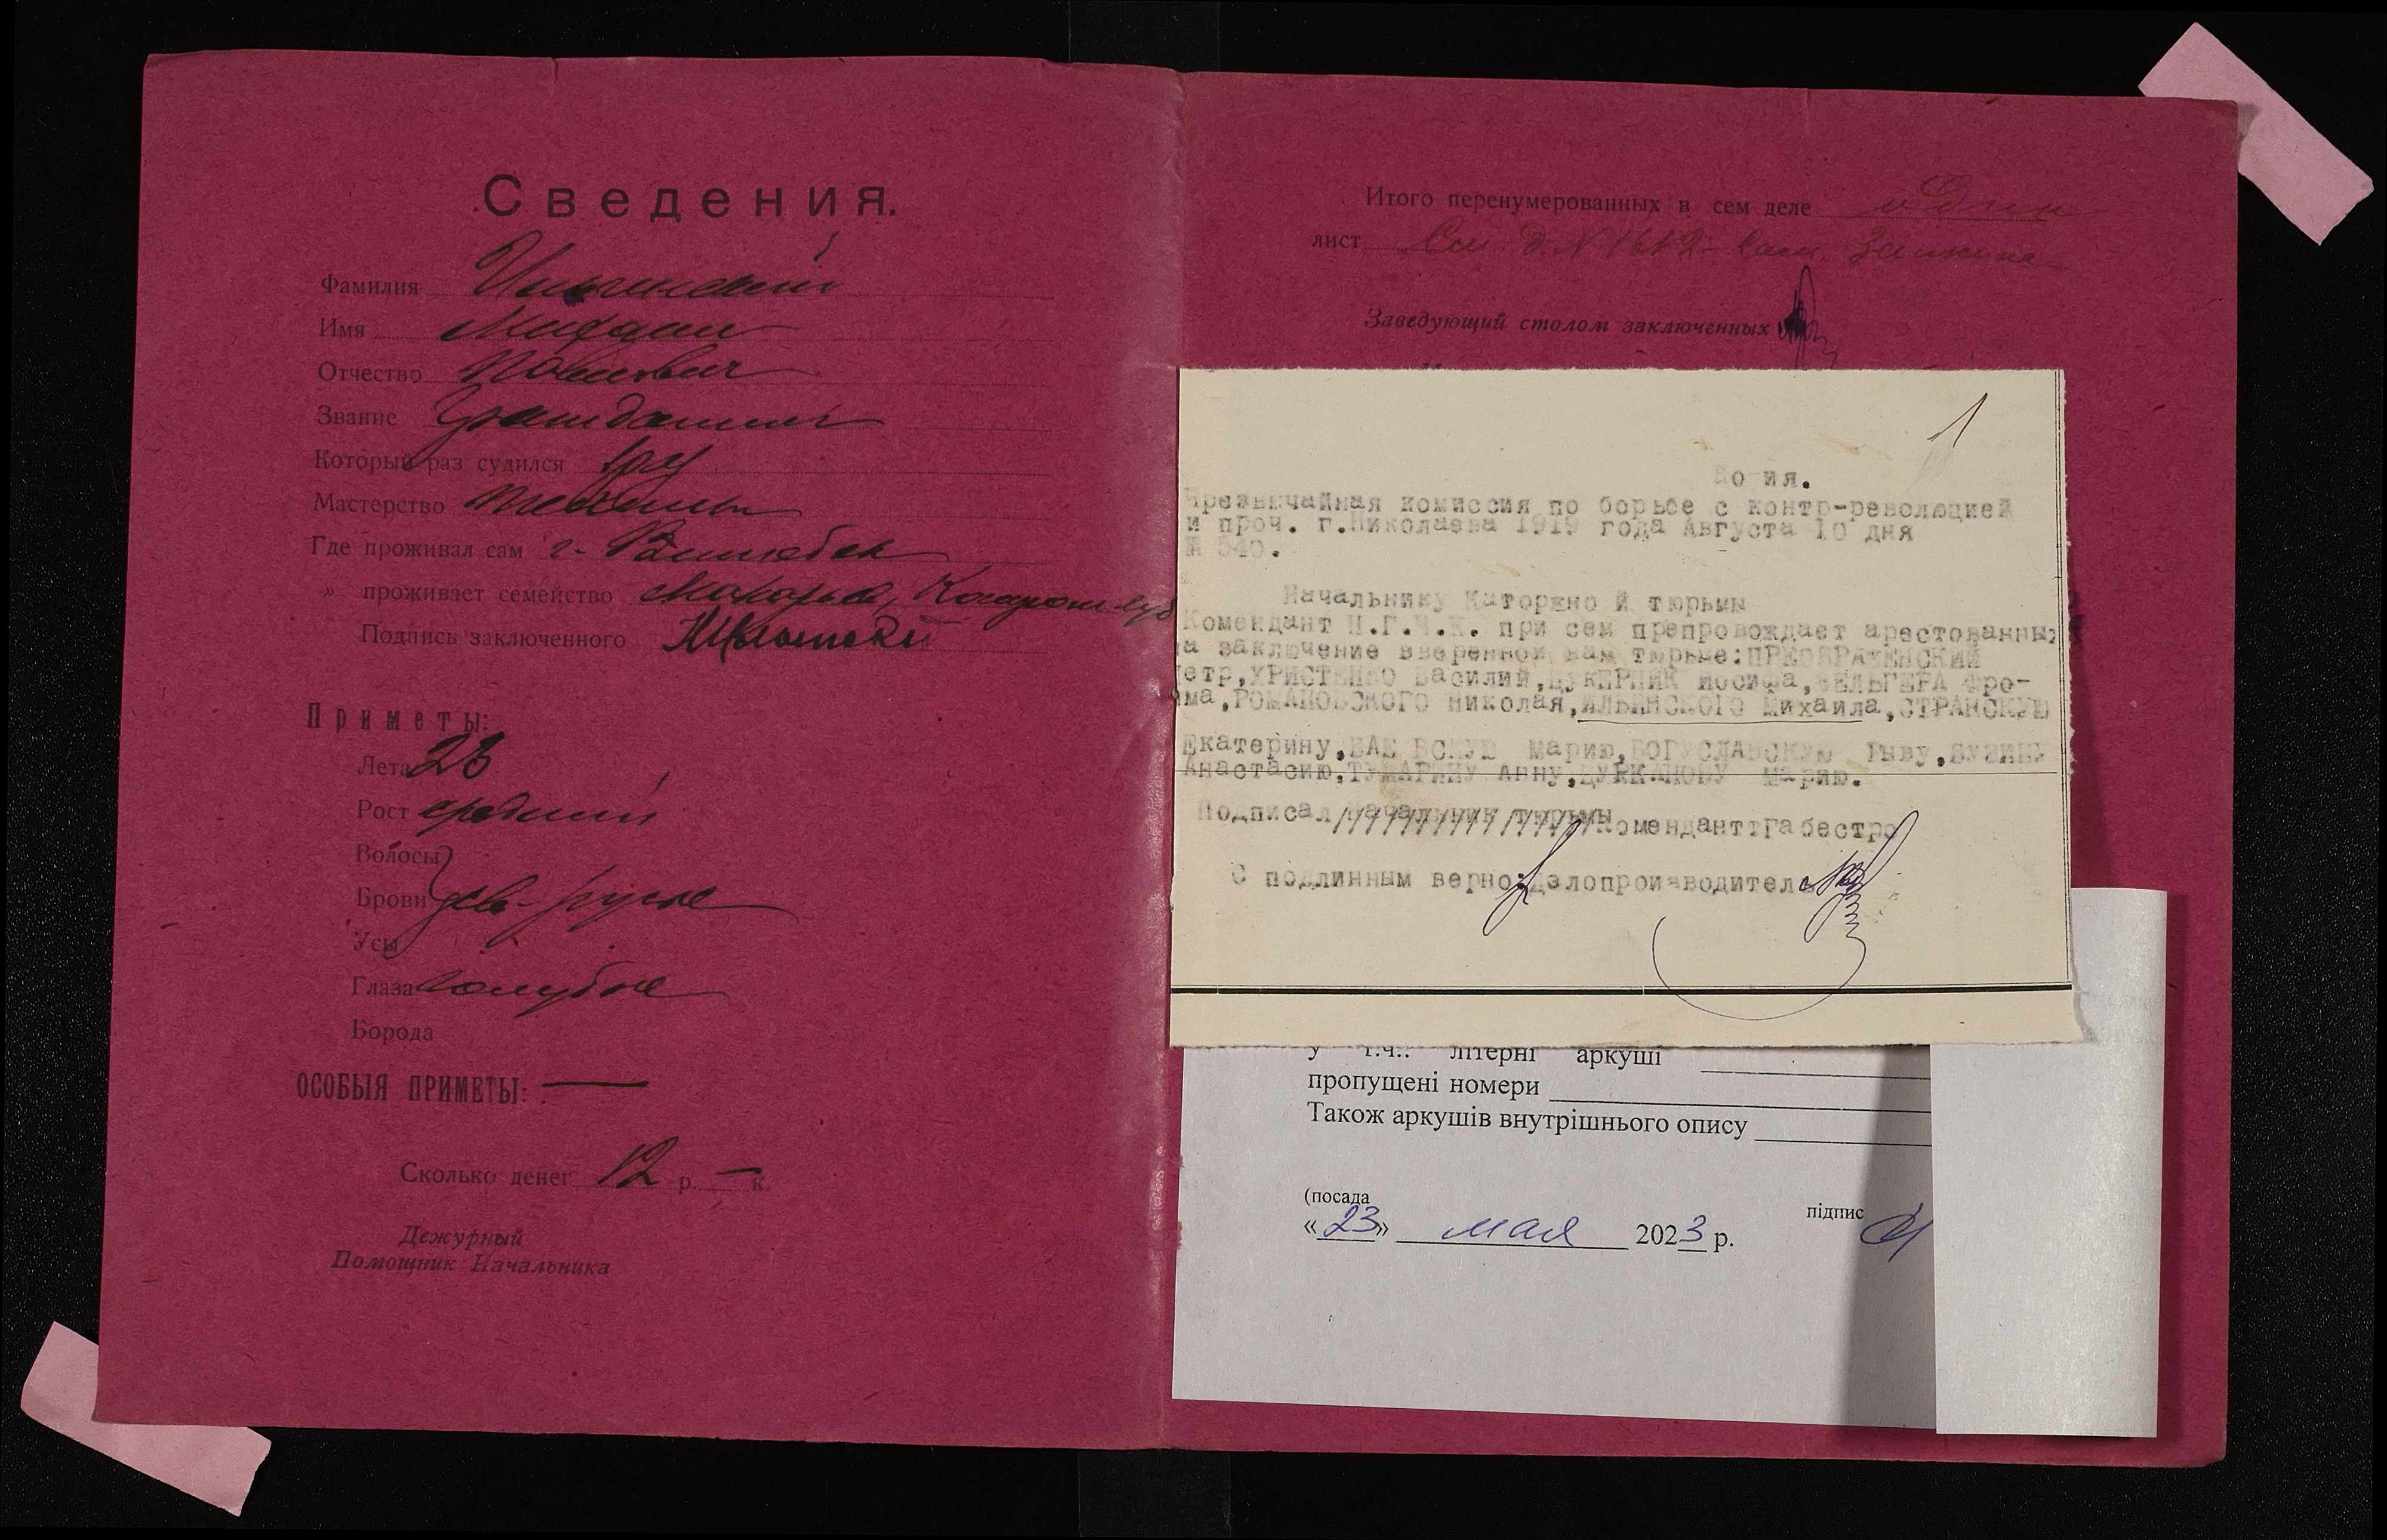 Сведения.
Фамилия Ильинский
Имя Михаил
Отчество
Звание Гражданин
Который раз судился 1 раз
Мастерство
Где проживал сам г. Витебск
» проживает семейство Макарьев, Костром. губ
Подпись заключенного
Приметы:
Лета 23
Рост средний
Волосы
Брови св-русые
Усы
Глаза голубые
Борода
ОСОБЫЯ ПРИМЕТЫ: —
Сколько денег 12 р. — к.
Дежурный
Помощник Начальника
Итого перенумерованных в сем деле один
лист См. д. № 1612
Заведующий столом заключенных
1
Ко ия.
Чрезвычайная комиссия по борьбе с контр-революцией
и проч. г.Николаева 1919 года Августа 10 дня
№ 540.
Начальнику Каторжно й тюрьмы
Комендант Н.Г.Ч.К. при сем препровождает арестованных
а заключение вверенной вам тюрьме:ПРЕОБРАЖЕНСКИЙ
етр,ХРИСТЕНКО Василий,ЦУКЕРНИК Иосифа,ЗЕЛЬГЕРА Фро-
ма,РОМАНОВСКОГО Николая,ИЛЬИНСКОГО Михаила,СТРАНСКУЮ
Екатерину, Марию,БОГУСЛАВСКУЮ Рыву,
Анастасию,ТУМАРИНУ Анну,ЦУРКАНОВУ Марию.
Подписал начальник тюрьмы Комендант:Габестро
С подлинным верно:Делопроизводитель
у т.ч.: літерні аркуші
пропущені номери
Також аркушів внутрішнього опису
(посада
підпис
«23» мая 2023 р.